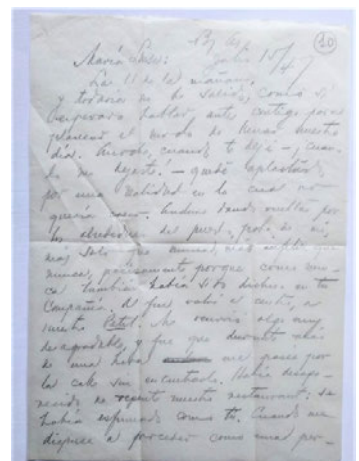 Bs As, (10)
María Luisa: Julio 15/47
Las 11 de la mañana.
y todavía no he salido, como si
esperara hablar antes contigo para
planear el modo de llenar nuestro
día. Anoche, cuando te dejé —, cuan-
do me dejaste! — quedé aplastado
por una realidad en la cual no
quería creer. Anduve dando vueltas por
los alrededores del puerto, de mí,
más solo que nunca, más que
nunca, precisamente porque como nun-
ca también había sido dichoso en tu
compañía. Al fin volví al centro, a
nuestro Petit. Me ocurrió algo muy
desagradable, y fue que durante más
de una hora me paseé por
la calle sin encontrarlo. Había desapa-
recido de repente nuestro restaurant: se
había esfumado como tú. Cuando me
disponía a proceder como una per-